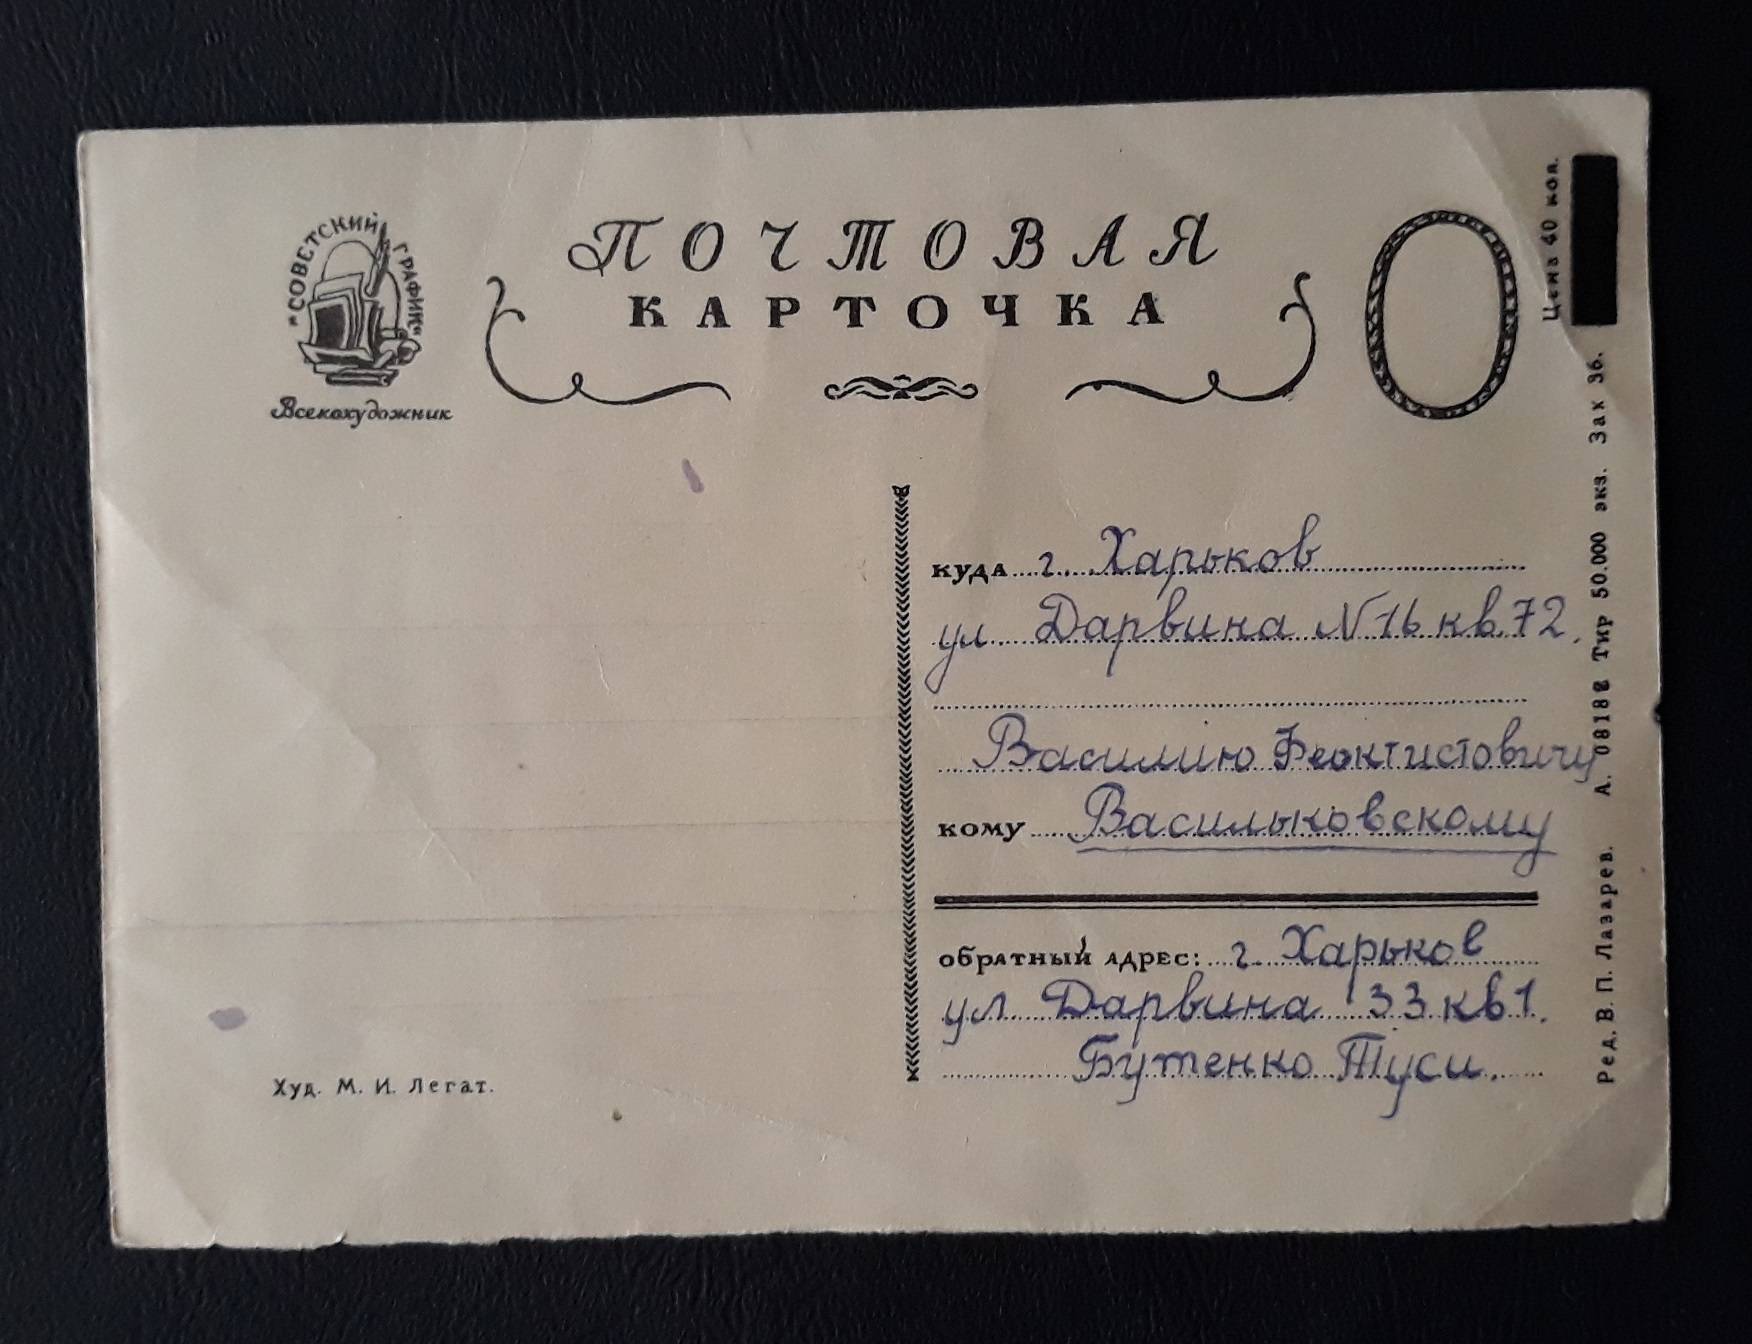 "СОВЕТСКИЙ ГРАФИК"
Всекохудожник
ПОЧТОВАЯ
КАРТОЧКА
куда г. Харьков
ул. Дарвина N 16 кв. 72.
Василию Феоктистовичу
кому Васильковскому
обратный адрес: г. Харьков
ул. Дарвина 33 кв 1.
Бутенко Туси.
Худ. М. И. Легат.
Цена 40 коп.
Ред. В. П. Лазарев. А. 08182 Тир 50.000 экз. Зак 36.